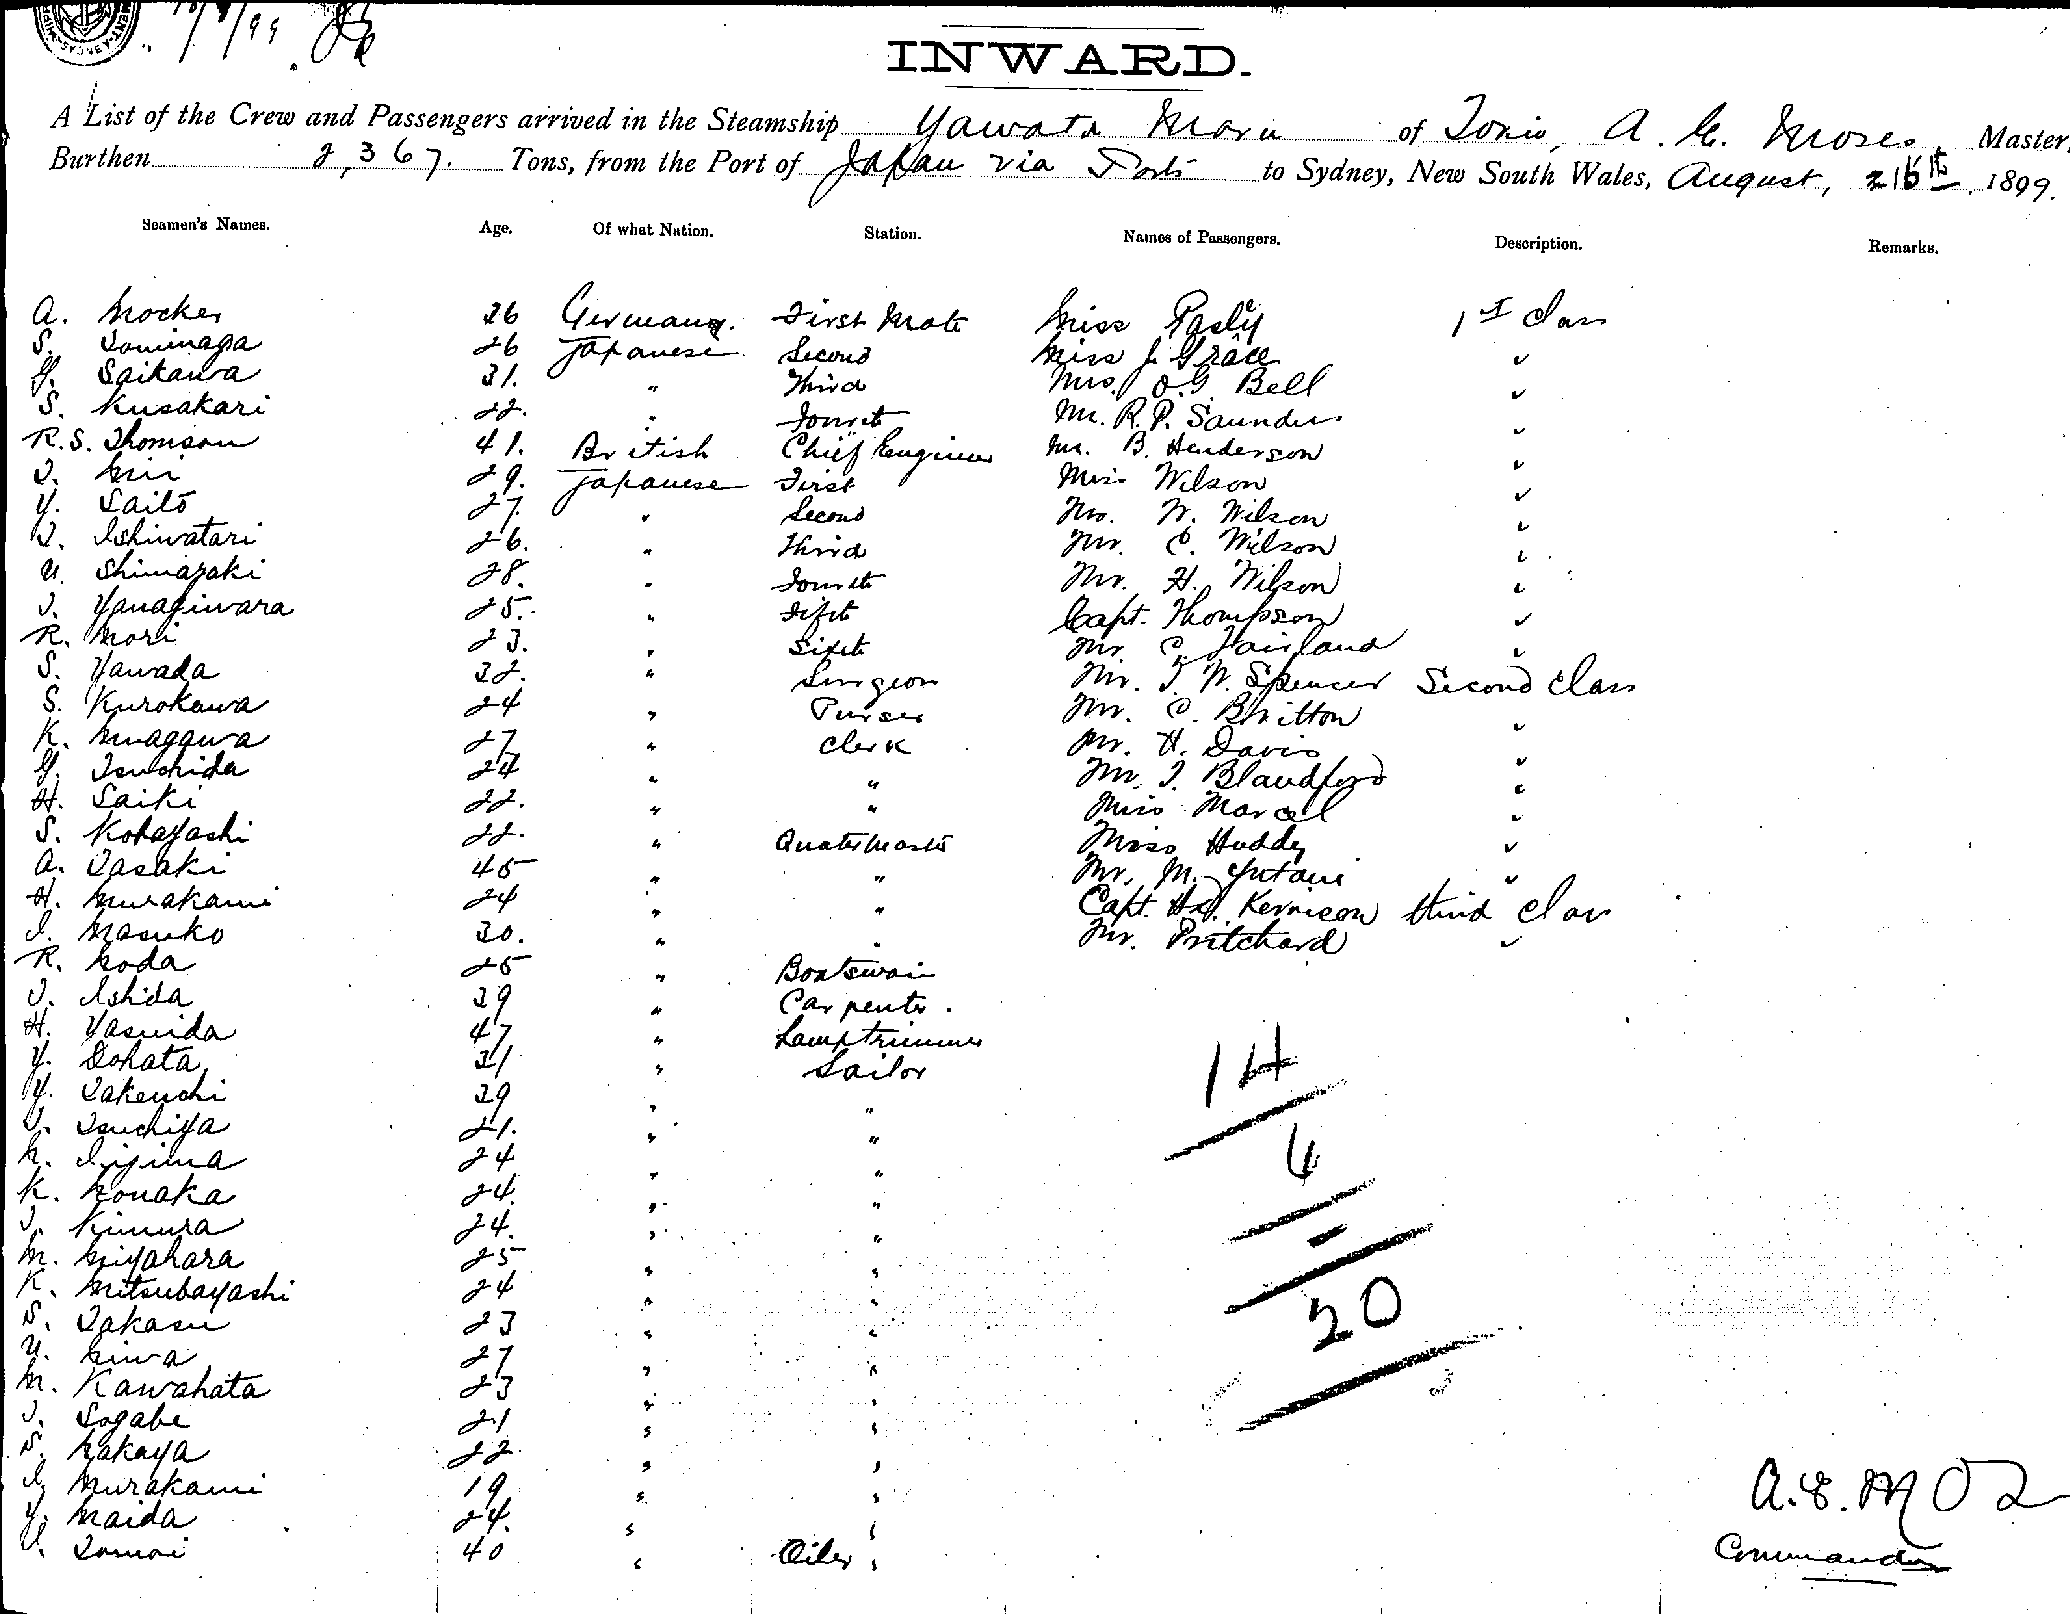 INWARD.
A List of the Crew and Passengers arrived in the Steamship Yawata Maru of Tokio, A. E. Moses, Master,
Burthen 2,367. Tons, from the Port of Japan via Ports to Sydney, New South Wales, August, 16th 1899.
Seamen's Names. Age. Of what Nation. Station. Names of Passengers. Description. Remarks.
A. Mocker 36 Germany. First Mate Miss Pasly 1st Class
S. Tominaga 26 Japanese Second Miss J. Grace "
G. Saikawa 31. " Third Mrs. O.G. Bell "
S. Kusakari 22. " Fourth Mr. R.P. Saunders "
R.S. Thomson 41. British Chief Engineer Mr. B. Henderson "
T. Mii 29. Japanese First Miss Wilson "
Y. Saito 27. " Second Mr. W. Wilson "
T. Ishiwatari 26. " Third Mr. C. Wilson "
U. Shimazaki 28. " Fourth Mr. H. Wilson "
T. Yanagiwara 25. " Fifth Capt. Thompson "
R. Mori 23. " Sixth Mr. C. Fairland "
S. Yawada 32. " Surgeon Mr. T. W. Spencer Second Class
S. Kurokawa 24 " Purser Mr. C. Britton "
K. 27 " Clerk Mr. H. Davis "
G. Tsuchida 24 " " Mr. T. Blandford "
H. Saiki 22. " " Miss Marcel "
S. Kobayashi 22. " Quatermaster Miss Huddy "
A. Tasaki 45 " " Mr. M. Yutani "
H. Murakami 24 " " Capt. Kernicon Third Class
I. Masuko 30. " " Mr. Pritchard "
R. Koda 25 " Boatswain
T. Ishida 39 " Carpenter.
H. Yasuida 47 " Lamptrimmer
Y. Dohata 31 " Sailor
Y. Takeuchi 39 " "
T. Tsuchiya 21. " "
N. Iijima 24 " "
K. Nonaka 24. " "
T. Kimura 24. " "
M. Miyahara 25 " "
K. Mitsubayashi 24 " "
S. Takasu 23 " "
U. Niwa 27 " "
M. Kawahata 23 " "
T. Sogabe 21 " "
S. Nakaya 22. " "
I. Murakami 19 " "
Y. Maida 24. " "
Tomoi 40 " Oiler "
14
6
20
A. E. Mo
Commander